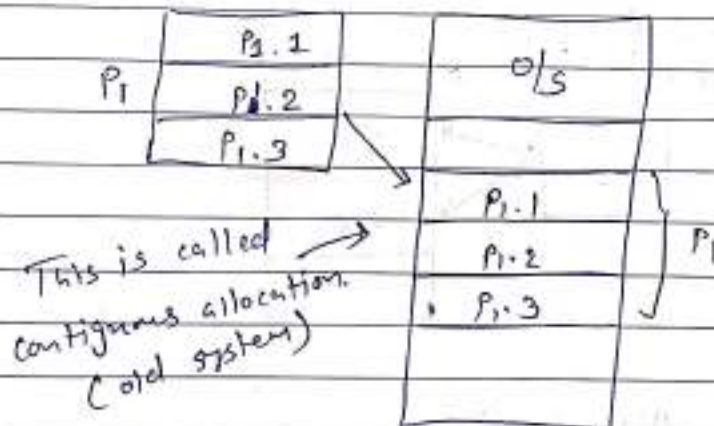 P1.1
P1
P1.2
P1.3
O/S
P1.1
P1.2
P1.3
P1
This is called
contiguous allocation.
(old system)